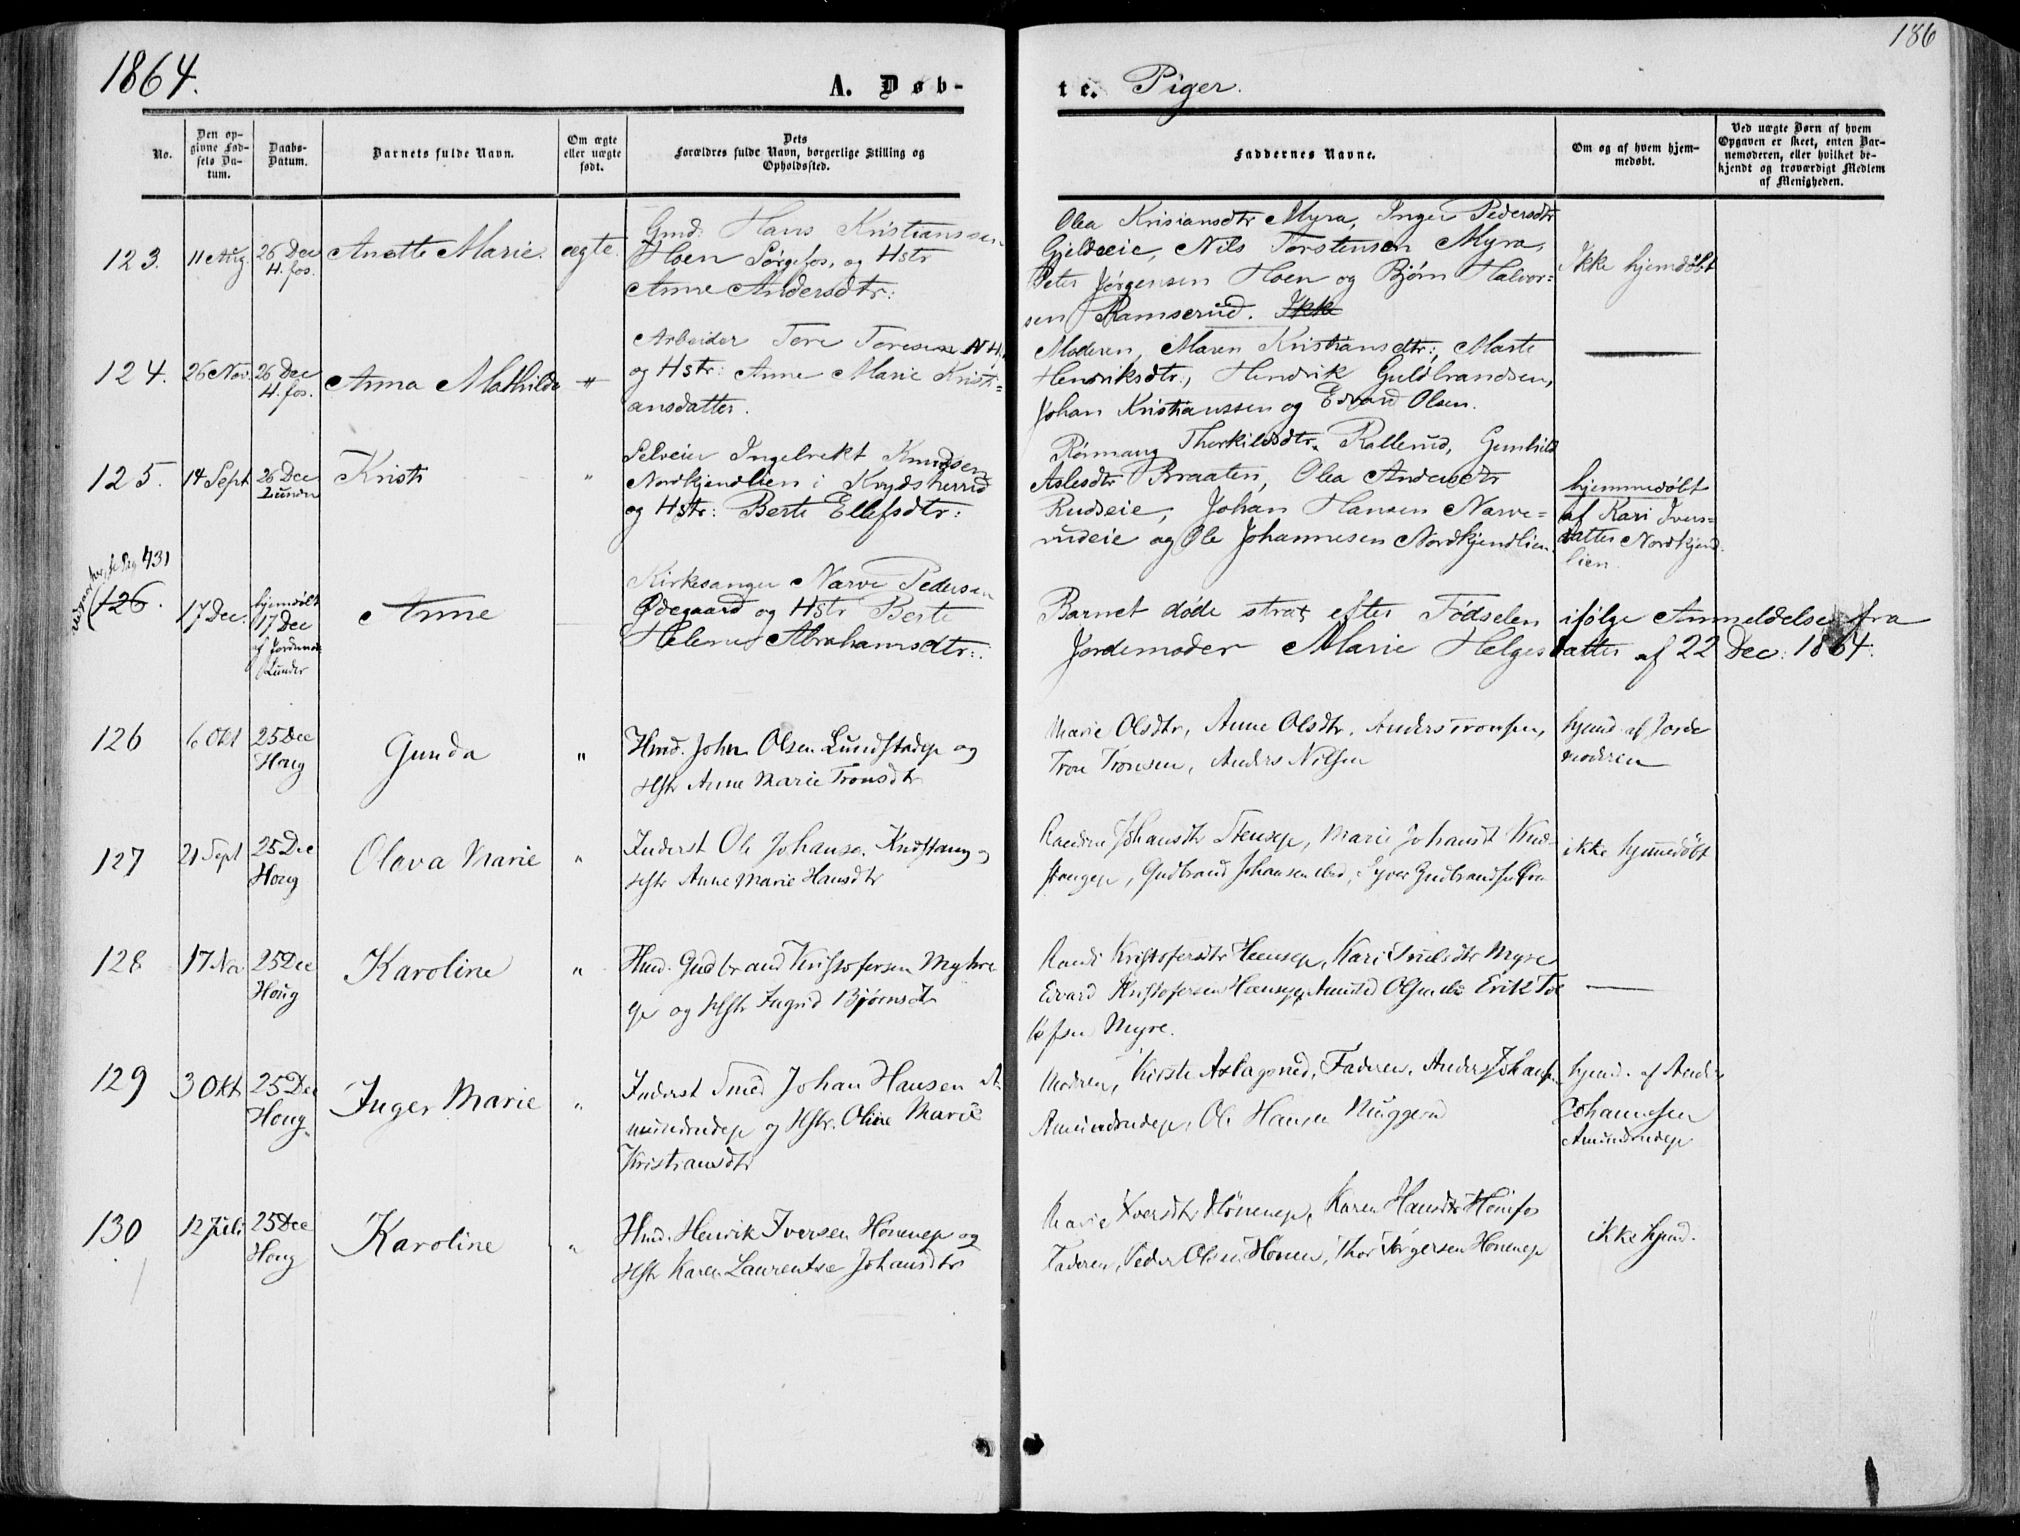 1864.
A. Døb-
te. Piger.
186
No.
Den op-
givne Fød-
sels Da-
tum.
Daabs-
Datum.
Barnets fulde Navn.
Om ægte
eller uægte
født.
Dets
Forældres fulde Navn, borgerlige Stilling og
Opholdssted.
Faddernes Navne.
Om og af hvem hjem-
medøbt.
Ved uægte Børn af hvem
Opgaven er skeet, enten Bar-
nemoderen, eller hvilket be-
kjendt og troværdigt Medlem
af Menigheden.
123. 11 Aug 26 Dec
H. fos.
Anette Marie. ægte.
Gmd. Hans Kristianssen
Hoen Sørgefos, og Hstr
Anne Andersdtr:
Olea Krisiansdtr Myra, Inger Pedersdtr
Gjeldseie, Nils Torstensen Myra,
Peter Jørgensen Hoen og Bjørn Halvor-
sen Ramserud. Ikke
Ikke hjemdøbt
124. 26 Nov. 26 Dec
H. fos.
Anna Mathilde
Arbeider Tore Toresen
og Hstr: Anne Marie Kristi-
ansdatter.
Moderen, Maren Kristiansdtr:, Marte
Hendriksdtr:, Hendrik Guldbrandsen,
Johan Kristianssen og Edvard Olsen.
125. 14 Sept 26 Dec
Lunder
Kristi "
Selveier Ingebrekt Knudsen
Nordkjendlien i Krydsherred
og Hstr: Berte Ellefsdtr:
Rønnaug Thorkildsdtr. Rallerud, Gunhild
Aslesdtr Braaten, Olea Andersdtr
Rudseie, Johan Hansen Narve-
rudeie og Ole Johannesen Nordkjendlien.
hjemmedøbt
af Kari Ivers-
datter Nordkjend-
lien.
431
126. 17 Dec. hjemdøbt
17 Dec
af Jordmod.
Lunder
Anne
Kirkesanger Narve Pedersen
Ødegaard og Hstr Berte
Helene Abrahamsdtr:.
Barnet døde strax efter Fødselen ifølge Anmeldelse fra
Jordemoder Marie Helgesdatter af 22 Dec: 1864.
126 6 Okt 25 Dec
Houg
Gunda "
Hmd. John Olsen Lundstadep og
Hstr Anne Marie Tronsdtr
Marie Olsdtr, Anne Olsdtr, Anders Tronsen,
Tron Tronsen, Anders Nilsen
hjemd af Jorde
moderen
127 21 Sept 25 Dec
Houg
Olava Marie "
Inderst Ole Johanse.
Hstr Anne Marie Hansdtr
Johansdtr Stensep, Marie Johansdt
Gudbrand Johansen
ikke hjemmedøbt
128 17 Nov 25 Dec
Houg
Karoline "
Hmd. Gudbrand Kristofersen Myhre
ep og Hstr Ingrid Bjørnsdtr
Randi Kristofersdtr Heensep, Kari Truelsdtr Myre
Edvard Kristofersen Amund Olsen Erik
Myre.
129 3 Okt 25 Dec
Houg
Inger Marie "
Inderst Smed Johan Hansen A-
mundrudep og Hstr. Oline Marie
Kristiansdtr
Modren, Kirsti Aslagsrud, Faderen, Anders Johans.
Amundrudep, Ole Hansen Muggerud
hjemd. af Anders
Johannesen
Amundrudep
130 12 Juli 25 Dec
Houg
Karoline "
Hmd. Henrik Iversen Hønenep og
Hstr Karen Laurentse Johansdtr
Marie Iversdtr Hønenep, Karen Hansdtr Hønefos
Faderen, Peder Olsen Hønen, Thor Jørgersen Hønenep
ikke hjemd.